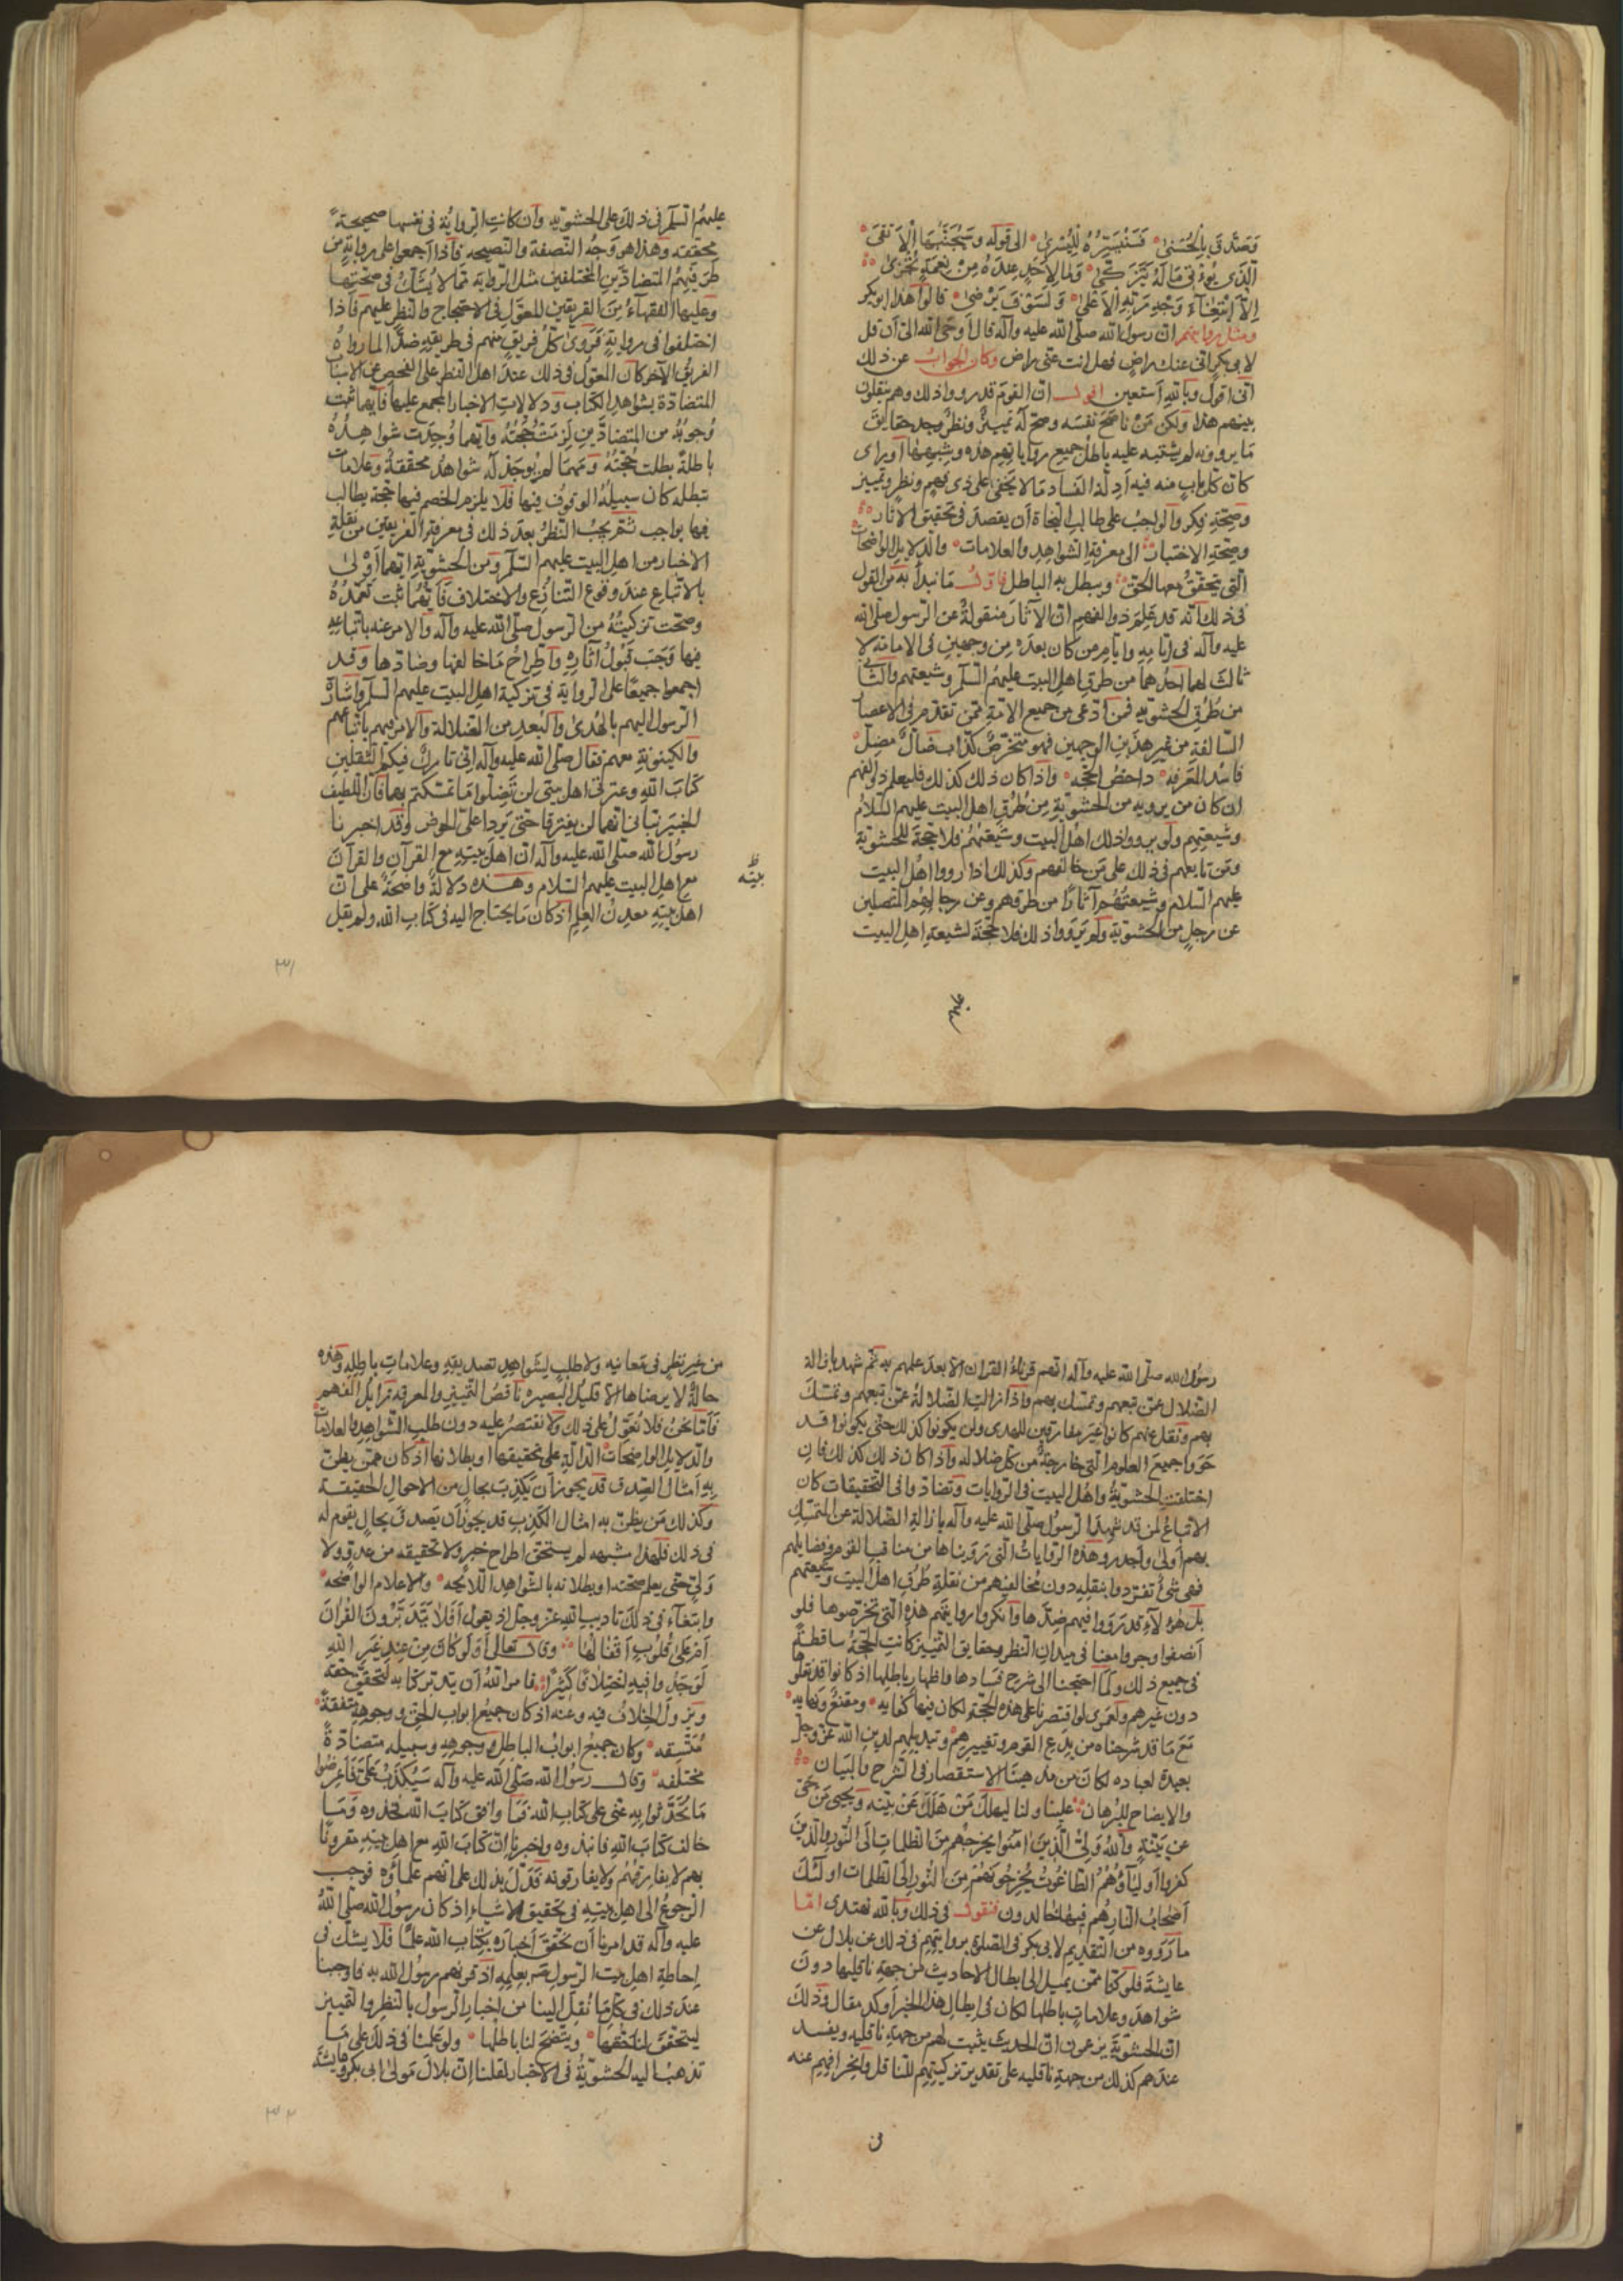 وَصَدَّقَ بِالْحُسْنٰى فَسَنُيَسِّرُهُ لِلْيُسْرٰى الى قوله وَسَيُجَنَّبُهَا الْاَتْقَى
الَّذى يُؤتى مَالَهُ يَتَزَكّٰى وَمَا لِاَحَدٍ عِنْدَهُ مِنْ نِعْمَةٍ تُجْزٰى
اِلَّا ابْتِغٰاءَ وَجْهِ رَبِّهِ الْاَعْلٰى وَلَسَوْفَ يَرْضٰى قالوا هذا ابوبكر
ومثل روايتهم ان رسول الله صلّى الله عليه وآله قال اَوحَى الله الىّ اَن قل
لابى بكر انى عنك راضٍ فهل انت عنّى راض وكان الجوابُ عن ذلك
انّى اقول وبالله اَستعين اقول انّ القوم قدرووا ذلك وهم ينقلون
بينهم هذا ولكن مَنْ ناصَحَ نفسَه وصحّ لَه تمييزٌ ونظرٌ وجد حقايق
مَا يروونه لم يشتبه عليه باطلُ جميع رواياتهم هذه وشبهها اَو راى
كان كل باب منه فيه اَدلّة الفساد مَا لا يَخفى على ذى فهمٍ ونظرٍ وتمييز
وصحّةِ فِكر والواجبُ على طالبِ النجاة اَن يقصدَ فى تحقيق الآثار
وصحّةِ الاخبار الى معرفةِ الشواهِدِ والعلامات والدلايل الواضحات
الّتى يتحقّقُ معها الحقّ ويبطل به الباطل فاوّل مَا نبدأ به من القول
فى ذلك انّه قد عَلِمَ ذوالفهمِ انّ الآثارَ منقولةٌ عن الرسول صلّى الله
عليه وآله فى اَيّامِهِ وايّامِ من كان بعدَه مِن وجهين فى الامامة لا
ثالثَ لهما احدُهما من طُرق اهل البيت عليهمُ السّلم وشيعتهم والثّانى
من طُرُق الحشويّه فمن ادّعى من جميع الامّة ممّن تقدّم فى الاعصار
السّالفة من غير هذين الوجهين فهو متخرّصٌ كذّاب ضالٌّ مضِلّ
فاسُد المعرفه داحضُ الحجّه واذا كان ذلك كذلك فليعلم ذوالفهم
ان كان من يرويه من الحشويّةِ مِن طُرُقِ اهل البيت عليهم السّلامُ
وشيعتِهِم ولم يرووا ذلك اهلُ البيت وشيعتهُمُ فلا حجّةَ للحشويّة
ومَن تابعهم فى ذلك على مَن خالفهم وكذلك اذا رووا اهلُ البيت
عليهم السّلام وشيعتهُم آثارًا من طرقهم وعن رجالهم المتّصلين
عن رجلٍ من الحشويّة ولم يَروَوا ذلك فلا حُجّة لشيعةِ اهل البيت
عليهم
عليهمُ السّلم فى ذلكَ على الحشويّه وَان كانتِ الرّوايةُ فى نفسها صحيحةً
محقّقه وهذا هو وَجهُ النّصفة والنّصيحه فاذا اجمعوا على روايةٍ من
طَرفَيهم المتضادّين المختلفين مثل الرّوايَة ممّا لا يُشَكُّ فى صحّتها
وعليها الفقهاءُ مِنَ الفريقين المعوّل فى الاحتجاج والنظر عليهم فاذا
اختلفوا فى روايةٍ فَرَوى كلُّ فريقٍ منهم فى طريقِهِ ضدًّا لما رواهُ
الفريقُ الآخر كان المعوّلُ فى ذلك عندَ اهل النّظر على الفحص عن الاسباب
المتضادّة بشواهِدِ الكتاب وَدلالاتِ الاخبار المجمَع عليها فايّهما ثبت
وُجوبُه من المتضادّين لَزِمَت حُجّتُهُ وايّهما وُجِدَت شواهِدُهُ
باطلةً بطلت حُجّتُهُ وَمهما لم يُوجَد لَه شواهدُ محقّقةٌ وعلاماتٌ
تبطله كان سبيلُه الوقوفُ فيها فلا يلزم الخصم فيها حجّة يطالب
فيها بواجب ثمّ يجبُ النّظرُ بعدَ ذلك فى معرفةِ الفريقين من نقلةِ
الاخبار من اهل البيت عليهم السّلم ومن الحشويّةِ ايّهما اَوْلى
بالاتّباعِ عندَ وقوع التّنازُعِ والاختلاف فاَيّهُما ثبت تَعَمّدُهُ
وصحّت تزكيتُهُ من الرّسول صلّى الله عليه وآله والامر عنه باتّباعِهِ
فيها وَجَبَ قَبُولُ آثارِهِ واَطِراحُ مَا خالفها وضادّها وقد
اجمعوا جميعًا على الرّوايَة فى تزكية اهل البيت عليهم السّلم واشارة
الرّسول اليهم بالهُدى والبُعدِ من الضّلالة والامر منهم باتّباعهم
والكينونةِ معهم فقال صلّى الله عليه وآله انّى تاركٌ فيكم الثّقلين
كتابَ اللهِ وعترتى اهلَ بيتى لن تَضِلّوا مَا تمسّكتم بهما فانّ اللّطيف
الخبير نبّأنى انّهما لن يفترقا حتّى يَردا علىّ الحوض وقد اخبرنا
رسُولُ الله صلّى الله عليه وآله انّ اهلَ بيتِهِ مع القرآن والقرآنَ
مع اهل البيت عليهم السّلام وهذه دلالةٌ واضحةٌ على انّ
اهلَ بيتِهِ معدِنُ العِلم اذ كان مَا يحتاج اليه فى كتاب الله ولم يقل
بيّنه
٣١
رسُول الله صلّى الله عليه وآله انّهم قُرناءُ القران الّا بعدَ علمهم به ثمّ شهدَ بازالة
الضّلال عمّن تبعهم وتمسّك بهم واذا زالت الضّلالة عمّن تبعهم وتمسّك
بهم ونقل عنهم كانوا غيرَ مفارقين للهدى ولن يكونوا كذلك حتّى يكونوا قد
حَوَوا جميعَ العلوم الّتى خارجةٌ من كلّ ضلاله واذا كان ذلك كذلك فان
اختلفت الحشويّةُ واهل البيت فى الرّوايات وتضادّوا فى التحقيقات كان
الاتباعُ لمن قد شهدَ الرسولُ صلّى الله عليه وآله بازالةِ الضّلالة عن المتمسّكِ
بهم اَولى واَجدر وهذه الرّواياتُ الّتى رَوَيناها من مناقب القوم وفضايلهم
فهى شئٌ تفرّدوا بنقلِهِ دونَ مُخالفيهم من نقلةِ طُرُقِ اهل البيت وشيعتهم
بل هؤلآءِ قدرَوَوا فيهم ضدّها وانكروا روايتهم هذه الّتى تخرّصوها فلو
اَنصفوا وجروا معنا فى ميدان النظر وحقايق التمييز كانتِ الحجّةُ ساقطةً
فى جميع ذلك وَلَما احتجنا الى شرح فسادها واظهار باطلها اذ كانوا قد نقلوا
دون غيرهم ولعمرى لو اقتصرنا على هذه الحجّة لكان فيها كفايه ومقنعٌ ونهايه
مَعَ مَا قد شرحناه من بِدَعِ القوم وتغييرِهِمْ وتبديلِهِم لدينِ الله عزّ وجلّ
بعيدة لعباده لكانَ من مذهبنا الاستقصار فى الشّرح والبيان
والايضاح للبُرهان علينا ولنا ليهلكَ مَنْ هَلَكَ عَنْ بيّنه ويحيى مَن حَىّ
عن بيّنةٍ واللهُ وَلِىُّ الّذينَ امَنُوا يخرجُهم مِنَ الظلماتِ اِلَى النّورِ والّذينَ
كفروا اَولياؤُهُمُ الطّاغُوتُ يُخرِجُونَهُمْ مِنَ النُّورِ اِلَى الظّلماتِ اولئك
اَصحابُ النّارِ هُم فيها خالدون فنقول فى ذلك وبالله نهتدى امّا
مارَوَوه من التّقديم لابى بكر فى الصّلوة بروايتهم فى ذلك عن بلال عن
عايشةَ فلو كنّا ممّن يميل الى ابطال الاحاديث من جهةِ ناقليها دونَ
شواهدَ وعلاماتِ باطلها لكان فى ابطال هذا الخبر اَوكد مقال وذلك
انّ الحشويّةَ يزعمون انّ الحديثَ يثبت لهم من جهةِ ناقليه ويفسد
عندَهم كذلك من جهةِ ناقليه على تقدير تزكيتِهِم للنّاقل وانحرافهم عنه
من
من غير نظرٍ فى معانيه ولا طلبٍ لشواهِدِ تصديقِهِ وعلاماتِ باطله وهذه
حالةٌ لا يرضاها الّا قليلُ البصيره ناقصُ التّمييز والمعرفه زايلُ الفهم
فاَمّا نحنُ فلا نُعَوِّلُ على ذلك ولا نقتصرُ عليه دون طلبِ الشّواهِدِ والعلامات
والدلايل الواضحات الدالّةِ على تحقيقها او بطلانها اذ كان ممّن يظنّ
بِهِ اَمثال الصّدق قد يجوز اَن يَكذِبَ بحالٍ من الاحوال الحقيقة
وكذلك مَن يظنّ به امثال الكذب قد يجوزُ اَن يصدقَ بحالٍ يقوم له
فى ذلك فلهذا شبهه لم يستحقّ اطراح خبرٍ ولا تحقيقه من عدوّ ولا
وَلىّ حتّى يعلم صحّته او بطلانه بالشّواهد اللّايحه والاعلام الواضحه
وابتغاء فى ذلكَ تاديب الله عزّ وجلّ اذ يقول اَفَلا يَتَدَبَّرُونَ القُرانَ
اَم عَلى قُلُوبٍ اَقْفٰالُهٰا وقال تعالى وَلَو كانَ مِنْ عِندِ غيرِ اللهِ
لَوَجَدُوا فيهِ اختلافًا كَثيرًا فامر اللهُ اَن يتدبّر كتابه لتحقّق حقّه
ويزولَ الخِلافُ فيه وعنه اذ كان جميعُ ابوابِ الحقّ ووجوهِهِ متّفقةً
مُتّسقه وكان جميعُ ابوابُ الباطل ووجوهِه وسبيله متضادّةً
مختلفه وقال رسولُ الله صلّى الله عليه وآله سيُكذَبُ عَلَىّ فاَعرِضُوا
مَا تُحَدَّثوا بِهِ عنّى على كتابِ الله فمَا وافق كتابَ الله فخذوه وَمَا
خالف كتابَ اللهِ فانبذوه واخبرنا انّ كتابَ اللهِ مع اهلِ بيتِهِ مقرونًا
بهم لا يفارقهُم ولا يفارقونه فدَلّ بذلك على انّهم علماؤُه فوجب
الرّجوعُ الى اهلِ بيتِهِ فى تحقيق الاشياء اذ كان رسُولُ الله صلّى اللهُ
عليه وآله قد امرنا اَن نُحَقّقَ اَخبارَه بكتابِ الله علمًا فلا يشكّ فى
اِحاطةِ اهل بيت الرّسول صه بعلمِهِ اذ قرنهم رسولُ الله به فاوجبنا
عندَ ذلك فى كلّ مَا نُقِلَ الينا من اخبار الرّسول بالنّظر والتّمييز
ليتحقّقَ لنا حقُّها ويتّضحَ لنا باطلُها ولو عملنا فى ذلك على مَا
تذهبُ اليه الحشويّةُ فى الاخبار لقلنا انّ بلالَ مَولى ابى بكر وعايشة
٣٢